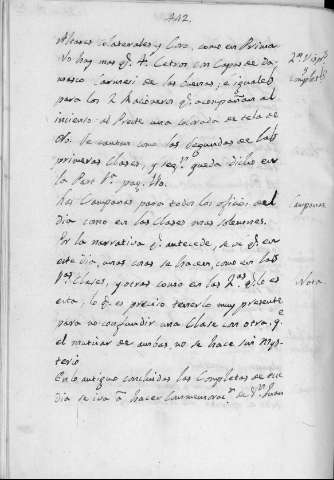 442.
Altares colaterales y Coro, como en Primª
No hay mas q.e 4. Cetros con Capas de Da-
masco Carmesi de las buenas, é iguales
para los 2 Racioneros q.e acompañan al
incienso al Preste una colorada de tela de
oro. Se cantan como las segundas de las
primeras Clases, y seg.n queda dicho en
la Part. 1.a pag. 110.
Las Campanas para todos los oficios del
Dia como en las Clases mas solemnes.
Por la narrativa q.e antecede, se ve q.e en
este dia, unas cosas se hacen como en las
1.as Clases, y otras como en las 2.as q.e lo es
esta, lo q.e es preciso tenerlo muy presente
para no confundir una Clase con otra, q.e
el mutuar de ambas, no se hace sin mys-
terio
En lo antiguo concluidas las Completas de este
dia se iva á hacer Conmemorac.n de S.n Juan
2.as Visp.s
Complet.s
Campanas
Nota